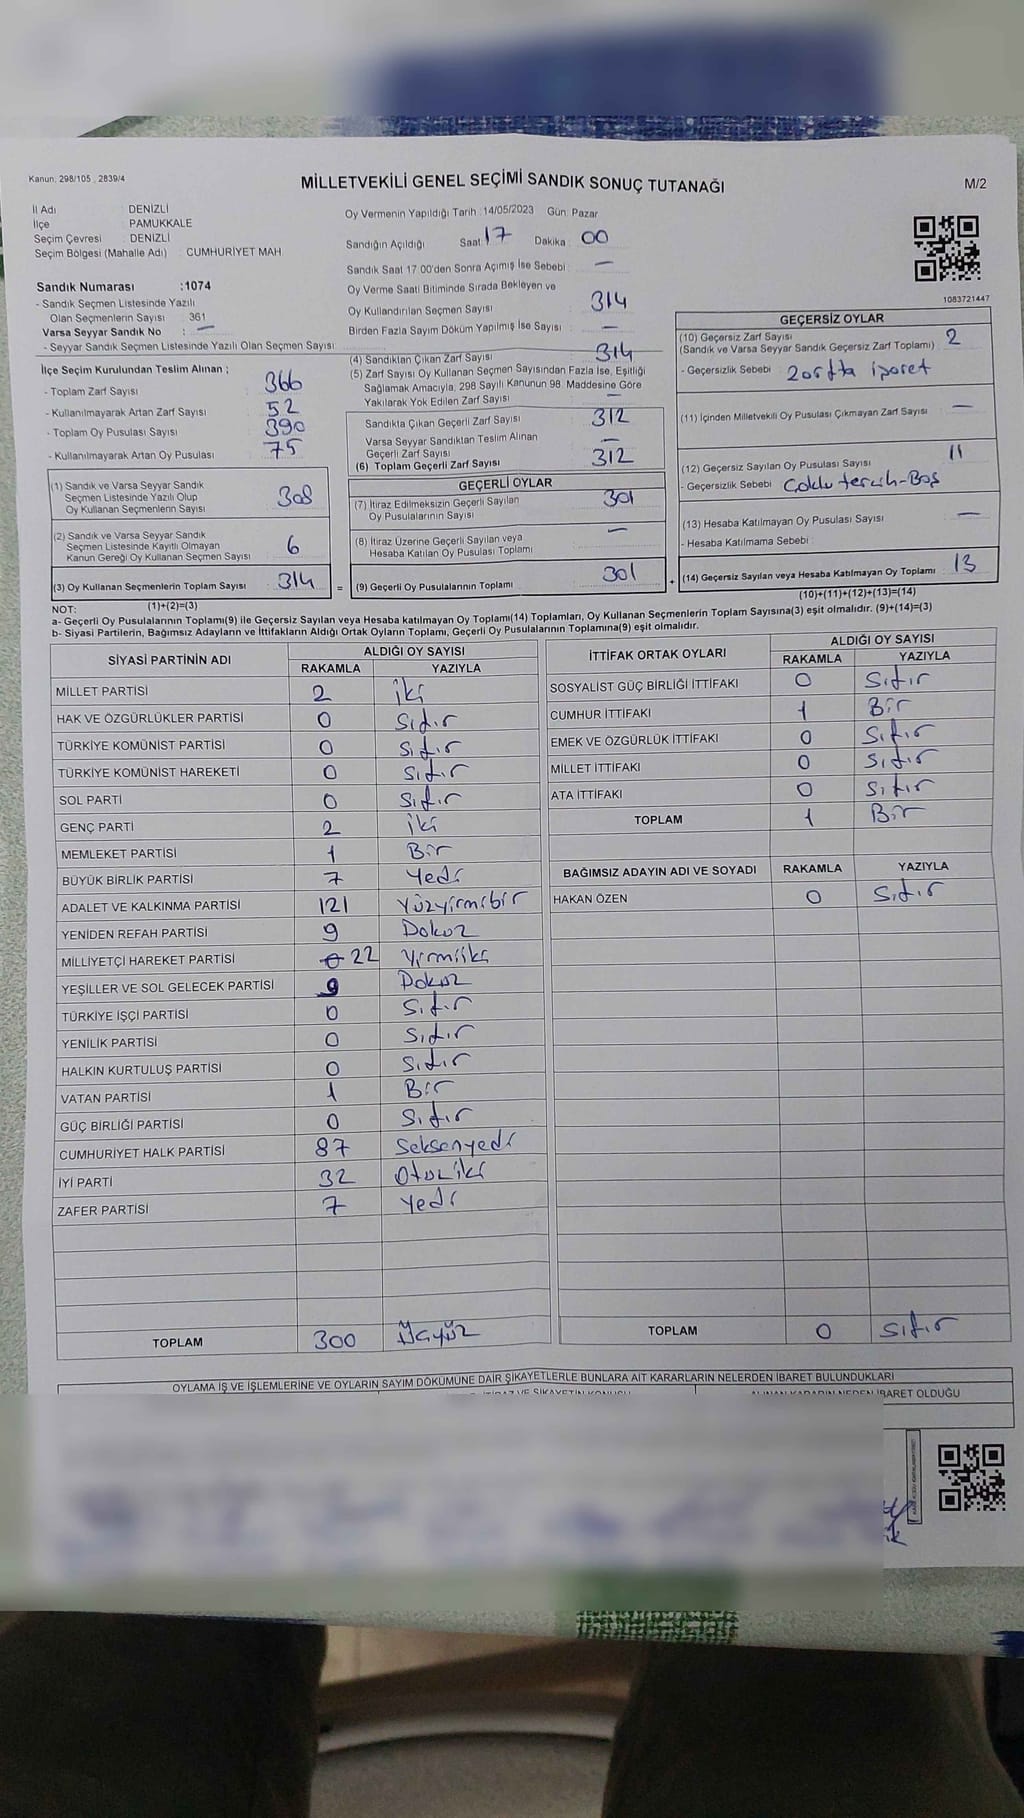 Kanun: 298/105 , 2839/4
MİLLETVEKİLİ GENEL SEÇİMİ SANDIK SONUÇ TUTANAĞI
M/2
İl Adı DENİZLİ
İlçe PAMUKKALE
Seçim Çevresi : DENİZLİ
Seçim Bölgesi (Mahalle Adı) CUMHURİYET MAH
Oy Vermenin Yapıldığı Tarih :14/05/2023 Gün: Pazar
Sandığın Açıldığı Saat 17 Dakika 00
Sandık Saat 17:00'den Sonra Açımış İse Sebebi : —
Oy Verme Saati Bitiminde Sırada Bekleyen ve
Oy Kullandırılan Seçmen Sayısı 314
Birden Fazla Sayım Döküm Yapılmış İse Sayısı : —
1083721447
Sandık Numarası :1074
- Sandık Seçmen Listesinde Yazılı
Olan Seçmenlerin Sayısı 361
Varsa Seyyar Sandık No : —
- Seyyar Sandık Seçmen Listesinde Yazılı Olan Seçmen Sayısı:
İlçe Seçim Kurulundan Teslim Alınan ;
- Toplam Zarf Sayısı 366
- Kullanılmayarak Artan Zarf Sayısı 52
- Toplam Oy Pusulası Sayısı 390
- Kullanılmayarak Artan Oy Pusulası 75
(1) Sandık ve Varsa Seyyar Sandık
Seçmen Listesinde Yazılı Olup
Oy Kullanan Seçmenlerin Sayısı 308
(2) Sandık ve Varsa Seyyar Sandık
Seçmen Listesinde Kayıtlı Olmayan
Kanun Gereği Oy Kullanan Seçmen Sayısı 6
(3) Oy Kullanan Seçmenlerin Toplam Sayısı 314 =
(1)+(2)=(3)
(4) Sandıktan Çıkan Zarf Sayısı 314
(5) Zarf Sayısı Oy Kullanan Seçmen Sayısından Fazla İse, Eşitliği
Sağlamak Amacıyla, 298 Sayılı Kanunun 98. Maddesine Göre
Yakılarak Yok Edilen Zarf Sayısı
Sandıkta Çıkan Geçerli Zarf Sayısı 312
Varsa Seyyar Sandıktan Teslim Alınan
Geçerli Zarf Sayısı —
(6) Toplam Geçerli Zarf Sayısı 312
GEÇERLİ OYLAR
(7) İtiraz Edilmeksizin Geçerli Sayılan
Oy Pusulalarının Sayısı 301
(8) İtiraz Üzerine Geçerli Sayılan veya
Hesaba Katılan Oy Pusulası Toplamı —
(9) Geçerli Oy Pusulalarının Toplamı 301 +
GEÇERSİZ OYLAR
(10) Geçersiz Zarf Sayısı
(Sandık ve Varsa Seyyar Sandık Geçersiz Zarf Toplamı) 2
- Geçersizlik Sebebi : 2 işaret
(11) İçinden Milletvekili Oy Pusulası Çıkmayan Zarf Sayısı —
(12) Geçersiz Sayılan Oy Pusulası Sayısı 11
- Geçersizlik Sebebi : Çoklu tercih-Boş
(13) Hesaba Katılmayan Oy Pusulası Sayısı —
- Hesaba Katılmama Sebebi :
(14) Geçersiz Sayılan veya Hesaba Katılmayan Oy Toplamı 13
(10)+(11)+(12)+(13)=(14)
NOT:
a- Geçerli Oy Pusulalarının Toplamı(9) ile Geçersiz Sayılan veya Hesaba katılmayan Oy Toplamı(14) Toplamları, Oy Kullanan Seçmenlerin Toplam Sayısına(3) eşit olmalıdır. (9)+(14)=(3)
b- Siyasi Partilerin, Bağımsız Adayların ve İttifakların Aldığı Ortak Oyların Toplamı, Geçerli Oy Pusulalarının Toplamına(9) eşit olmalıdır.
SİYASİ PARTİNİN ADI ALDIĞI OY SAYISI
RAKAMLA YAZIYLA
MİLLET PARTİSİ 2 iki
HAK VE ÖZGÜRLÜKLER PARTİSİ 0 Sıfır
TÜRKİYE KOMÜNİST PARTİSİ 0 Sıfır
TÜRKİYE KOMÜNİST HAREKETİ 0 Sıfır
SOL PARTİ 0 Sıfır
GENÇ PARTİ 2 iki
MEMLEKET PARTİSİ 1 Bir
BÜYÜK BİRLİK PARTİSİ 7 Yedi
ADALET VE KALKINMA PARTİSİ 121 Yüzyirmibir
YENİDEN REFAH PARTİSİ 9 Dokuz
MİLLİYETÇİ HAREKET PARTİSİ 22 Yirmiiki
YEŞİLLER VE SOL GELECEK PARTİSİ 9 Dokuz
TÜRKİYE İŞÇİ PARTİSİ 0 Sıfır
YENİLİK PARTİSİ 0 Sıfır
HALKIN KURTULUŞ PARTİSİ 0 Sıfır
VATAN PARTİSİ 1 Bir
GÜÇ BİRLİĞİ PARTİSİ 0 Sıfır
CUMHURİYET HALK PARTİSİ 87 Seksenyedi
İYİ PARTİ 32 Otuziki
ZAFER PARTİSİ 7 Yedi
TOPLAM 300 Üçyüz
İTTİFAK ORTAK OYLARI ALDIĞI OY SAYISI
RAKAMLA YAZIYLA
SOSYALİST GÜÇ BİRLİĞİ İTTİFAKI 0 Sıfır
CUMHUR İTTİFAKI 1 Bir
EMEK VE ÖZGÜRLÜK İTTİFAKI 0 Sıfır
MİLLET İTTİFAKI 0 Sıfır
ATA İTTİFAKI 0 Sıfır
TOPLAM 1 Bir
BAĞIMSIZ ADAYIN ADI VE SOYADI RAKAMLA YAZIYLA
HAKAN ÖZEN 0 Sıfır
TOPLAM 0 Sıfır
OYLAMA İŞ VE İŞLEMLERİNE VE OYLARIN SAYIM DÖKÜMÜNE DAİR ŞİKAYETLERLE BUNLARA AİT KARARLARIN NELERDEN İBARET BULUNDUKLARI
İTİRAZ VE ŞİKAYETİN KONUSU ALINAN KARARIN NEDEN İBARET OLDUĞU